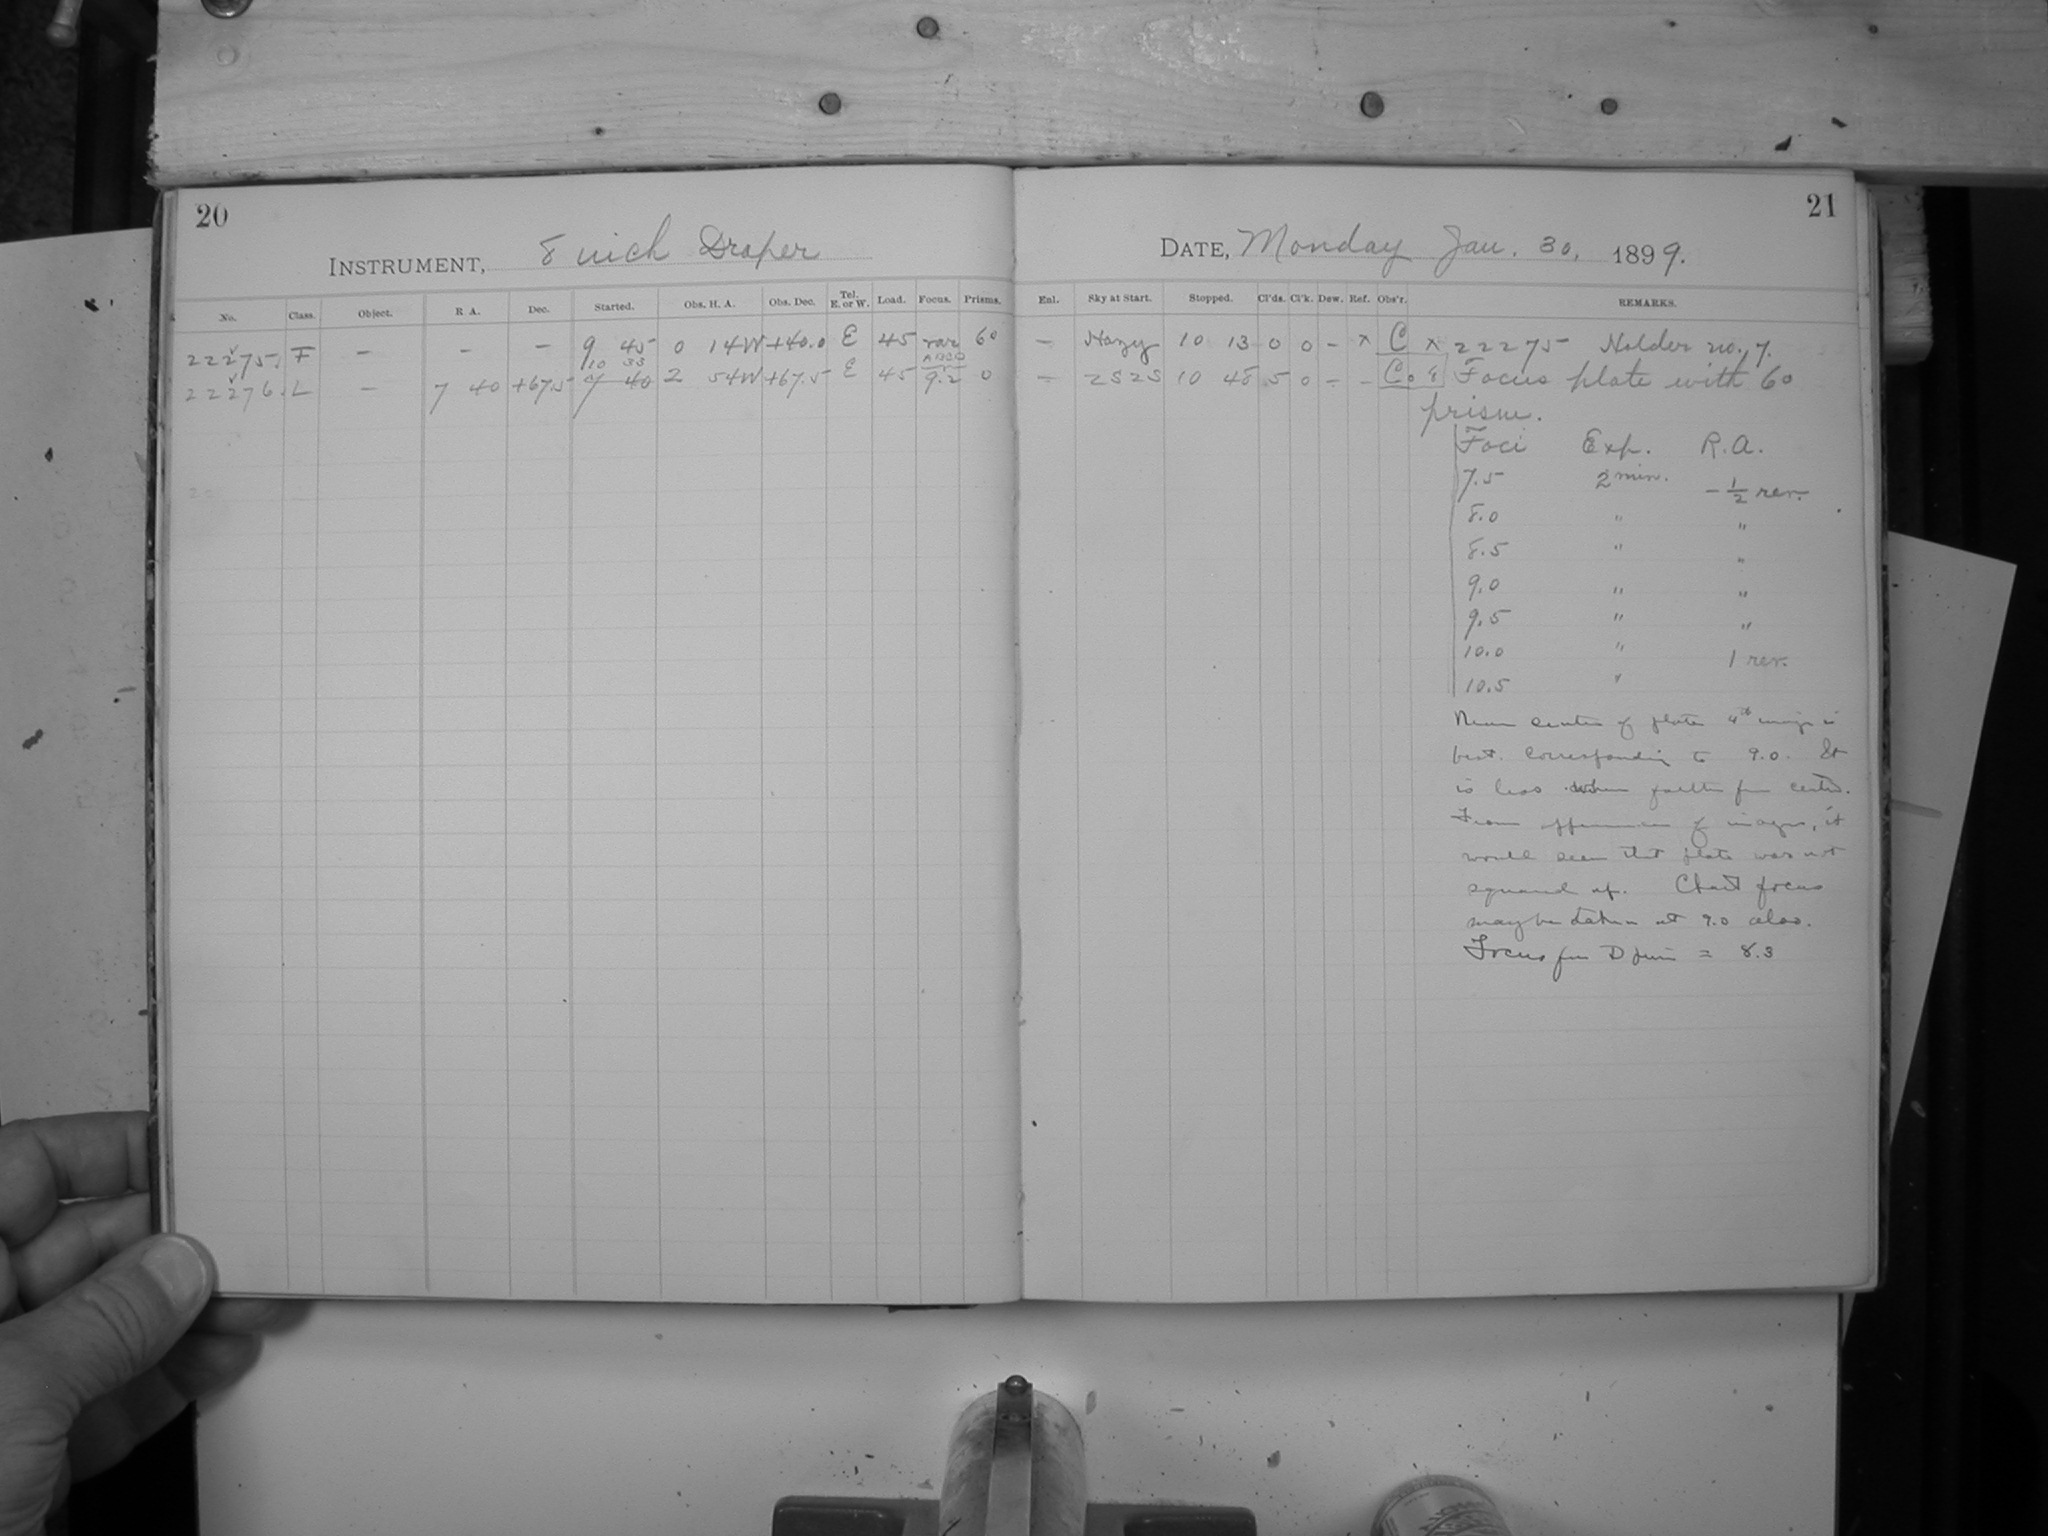 20
INSTRUMENT, 8 inch Draper
No. Class. Object. R A. Dec. Started. Obs. H. A. Obs. Dec. Tel. E. or W. Load. Focus. Prisms.
22275. F — — — 9 45 0 14W +40.0 E 45 var 60
10 33 ABCD
22276. L — 7 40 +67.5 7 40 2 54W +67.5 E 45 9.2 0
21
DATE, Monday Jan. 30, 1899.
Enl. Sky at Start. Stopped. Cl'ds. Cl'k. Dew. Ref. Obs'r. REMARKS.
— Hazy 10 13 0 0 - x C x 22275 Holder no. 7.
— 2S2S 10 48 5 0 - - Co Focus plate with 60
prism.
Foci Exp. R.A.
7.5 2 min. -1/2 rev.
8.0 " "
8.5 " "
9.0 " "
9.5 " "
10.0 " 1 rev.
10.5 "
Near center of plate 4th image is
best. Corresponding to 9.0. It
is less when farther from center.
From appearance of images, it
would seem that plate was not
squared up. Chart focus
may be taken at 9.0 also.
Focus for D = 8.3